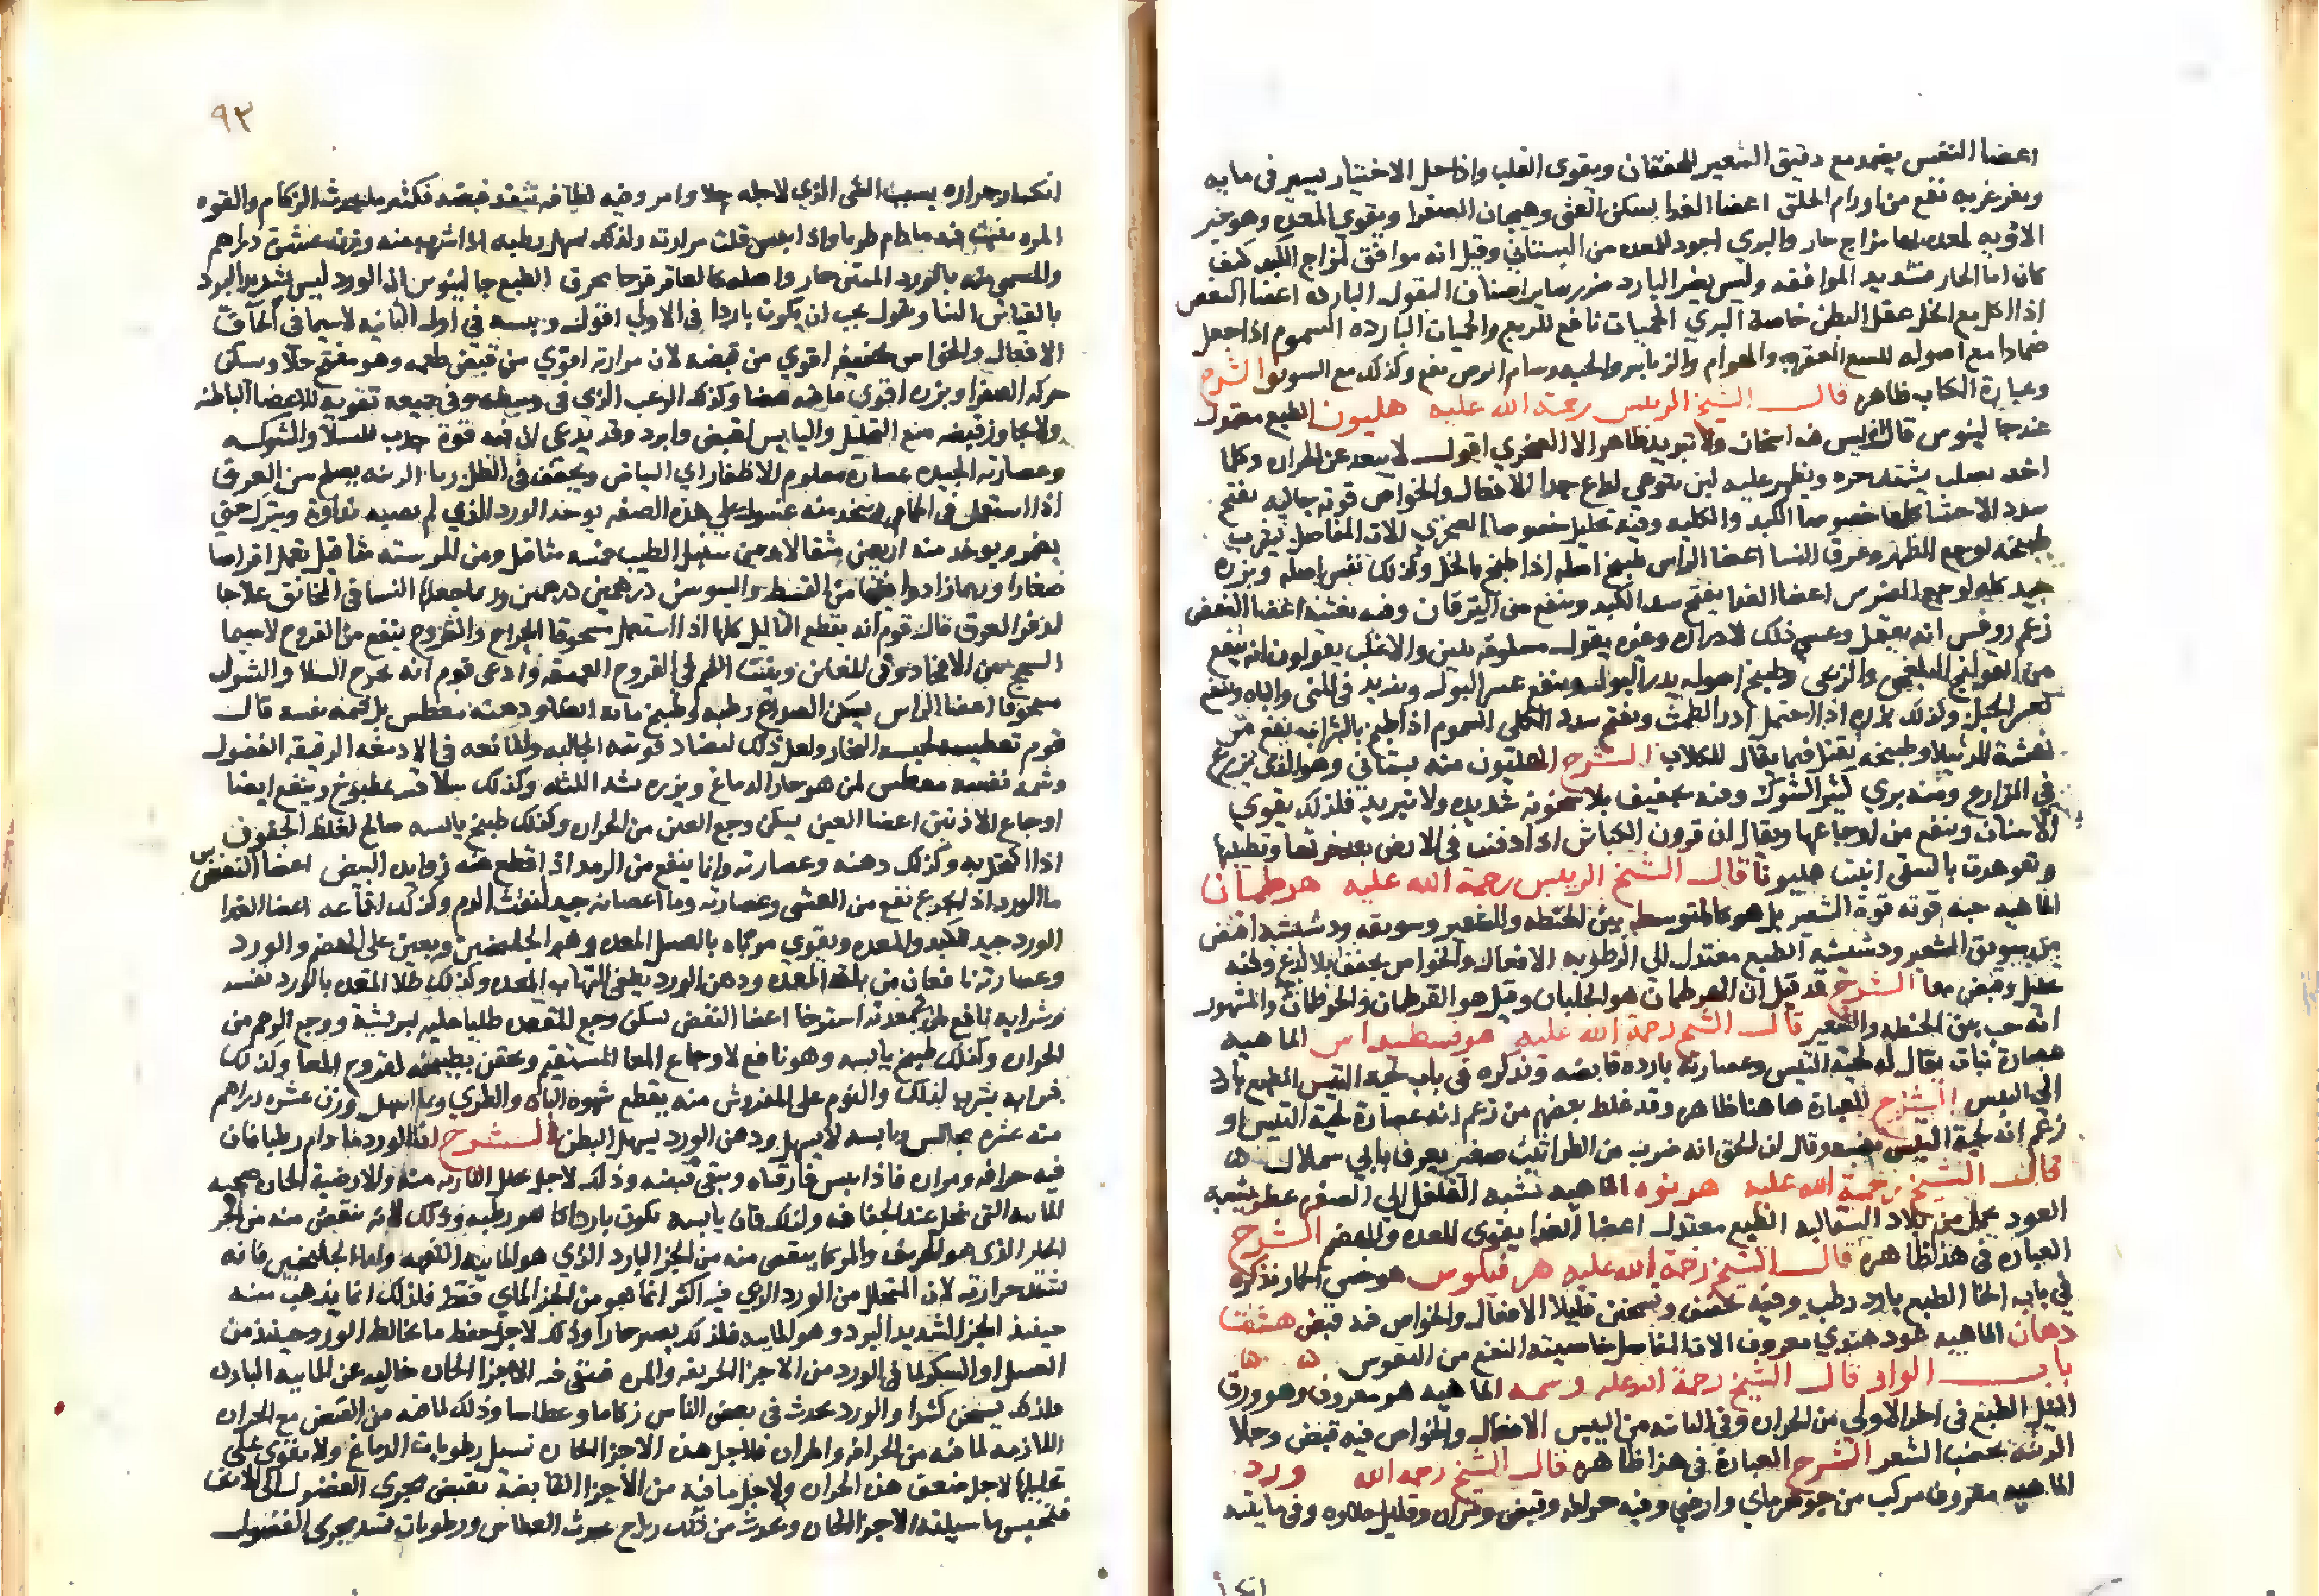 اعضا النفس يضمد مع دقيق الشعير للخفقان ويقوى القلب واذا حل الاختيار بيسير فى مايه
ويغرغر به نفع من اورام الحلق اعضا الغدا يسكن الغثى وهيجان الصفرا ويقوي المعده وهو خير
الادويه لمعده بها مزاج حار والبري اجود للمعده من البستاني وقيل انه موافق لمزاج الكبد كيف
كان اما الحار فشديد الموافقه وليس يضر البارد ضرر ساير اصناف البقول البارده اعضا النفض
اذا اكل مع الخل عقل البطن خاصة البري الحميات نافع للربع والحميات البارده السموم اذا جعل
ضمادا مع اصوله للسع العقرب والهوام والزنابير والحيه وسام ابرص نفع وكذلك مع السويق الشرح
وعبارة الكتاب ظاهره قال الشيخ الرييس رحمة الله عليه هليون الطبع معتدل
عند جالينوس قال ليس فيه اسخان ولا تبريد ظاهر الا الصخري اقول لا يبعد عن الحراره وكلما
اخذ يصلب يشتد حره ويظهر عليه لبن يتوعي لداع جدا الافعال والخواص قوته جاليه يفتح
سدد الاحشا كلها خصوصا الكبد والكليه وفيه تحليل خصوصا الصخري الات المفاصل يشرب
طبيخه لوجع الظهر وعرق النسا اعضا الراس طبيخ اصله اذا طبخ بالخل وكذلك نفس اصله وبزره
جيد كله لوجع الضرس اعضا الغدا يفتح سدد الكبد وينفع من اليرقان وفيه تغثية اعضا النفض
زعم روفس انه يعقل وعسى ذلك لادراره وغيره يقول مسلوقه يلين والاغلب يقولون انه ينفع
من القولنج البلغمي والريحي وطبيخ اصوله يدر البول وينفع عسر البول ويزيد فى المني والباه وينفع
لعسر الحبل وكذلك بزره اذا احتمل ادر الطمث ويفتح سدد الكلى السموم اذا طبخ بالشراب نفع من
نهشة الرتيلا وطبيخه يقتل فيما يقال للكلاب الشرح الهليون منه بستاني وهو الذي يزرع
في المزارع ومنه بري كثير الشوك وفيه تجفيف بلا سخونه شديده ولا تبريد فلذلك يقوي
الاسنان وينفع من اوجاعها ويقال ان قرون الكباش اذا دفنت فى الارض بعد خرقها وتطيينها
وتعوهدت بالسقى انبتت هليونا قال الشيخ الرييس رحمة الله عليه هرطمان
الماهيه حبه قوته قوة الشعير بل هو كالمتوسط بين الحنطه والشعير وسويقه ودشيشه اقبض
من سويق الشعير ودشيشه الطبع معتدل الى الرطوبه الافعال والخواص يجفف بلا لذع وفيه
تحليل وقبض معا الشرح قد قيل ان الهرطمان هو الجلبان وقيل هو القرطمان والخرطمان والمشهور
انه حب بين الحنطه والشعير قال الشيخ رحمة الله عليه هوفسطيداس الماهيه
عصارة نبات يقال له لحية التيس وعصارته بارده قابضه ونذكره فى باب لحية التيس الطبع بارد
الى اليبس الشرح العبارة هاهنا ظاهره وقد غلط بعضهم من زعم انه عصارة لحية التيس او
زعم انه لحية التيس بعينه وقال ان الحق انه ضرب من الطراثيث صغير يعرف بابي سملال
قال الشيخ رحمة الله عليه هرنوه الماهيه تشبه الفلفل الي الصفره عطر يشبه
العود يحمل من بلاد السقالبه الطبع معتدل اعضا الغدا يقوى للمعده وللهضم الشرح
العباره فى هذا ظاهره قال الشيخ رحمة الله عليه هرقلوس هو خس الحمار نذكره
في باب الخا الطبع بارد رطب وفيه تجفيف وتسخين قليلا الافعال والخواص فيه قبض هشت
دهان الماهيه عود هندي معروف الات المفاصل خاصيته النفع من النقرس
باب الواو قال الشيخ رحمة الله عليه وسمه الماهيه هو معروف وهو ورق
النيل الطبع فى اخر الاولى من الحراره وفي الثانيه من اليبس الافعال والخواص فيه قبض وجلا
الزينه يخضب الشعر الشرح العبارة فى هذا ظاهره قال الشيخ رحمه الله ورد
الماهيه معروف مركب من جوهر ماي وارضي وفيه حرافه وقبض ومراره وقليل حلاوه وفى مايته
٩٣
انكسار حراره بسبب الشى الذي لاجله حلا وامر وفيه لطافه تنفذ قبضه فكثيرا ما يحدث الزكام والقوه
المره تثبت فيه ما دام طريا واذا يبس قلت مرارته ولذلك يسهل رطبه اذا شرب منه وزنه عشرة دراهم
والمسمى منه بالورد المنتن حار واصله كالعاقرقرحا محرق الطبع جالينوس ان الورد ليس شديد البرد
بالقياس الينا ونقول يجب ان يكون باردا فى الاولى اقول ويبسه في اول الثانيه لاسيما في الجاف
الافعال والخواص تجفيفه اقوي من قبضه لان مرارته اقوي من قبض طعمه وهو مفتح جلا ويسكن
حركه الصفرا وبزره اقوى ما فيه قبضا وكذلك الزغب الذي فى وسطه وفى جميعه تقويه للاعضا الباطنه
ولا يجاوز قبضه منع التحليل واليابس اقبض وابرد وقد يدعى ان فيه قوة جذب للسلا والشوكه
وعصارته الجيده عصارة مقلوم الاظفار اي البياض ويجفف فى الظل ربا الزينه يصلح نتن العرق
اذا استعمل فى الحمام ويتخذ منه غسول علي هذه الصفه يوخذ الورد الذي لم يصبه نداوة ويترك حتى
يضمر ويوخذ منه اربعين مثقالا ومن سنبل الطيب خمسه مثاقيل ومن المر سته مثاقيل تعمل اقراصا
صغارا وربما زادوا فيها من القسط والسوسن درهمين درهمين وربما جعلها النسا فى المخانق علاجا
لذفر العرق قال قوم انه يقطع الثاليل كلها اذا استعمل مسحوقا الجراح والقروح ينفع من القروح لاسيما
السحج بين الافخاذ وفى المغابن وينبت اللحم في القروح العميقه وادعى قوم انه يخرج السلا والشوك
مسحوقا اعضا الراس يسكن الصداع رطبه وطبيخ يابسه ايضا ودهنه معطس بل شمه نفسه قال
قوم تعطيسه لحبسه البخار ولعل ذلك لتضاد قوته الجاليه والمانعه فى الادمغه الرقيقه الفضول
وشمه نفسه معطس لمن هو حار الدماغ وبزره يشد اللثه وكذلك سلاقته مطبوخ وينفع ايضا
اوجاع الاذنين اعضا العين يسكن وجع العين من الحراره وكذلك طبيخ يابسه صالح لغلظ الجفون
اذا اكتحل به وكذلك دهنه وعصارته وانما ينفع من الرمد اذا اقطع منه زوايده البيض اعضا النفس
ما الورد اذا تجرع نفع من الغشى وعصارته وما اغصانه جيد لنفث الدم وكذلك اقماعه اعضا الغدا
الورد جيد للكبد والمعده ويقوي مرباه بالعسل المعده وهو الجلنجبين ويعين على الهضم والورد
وعصارته نافعان من بلة المعده ودهن الورد يطفى التهاب المعده وكذلك طلا المعده بالورد نفسه
وشرابه نافع لمن بمعدته استرخا اعضا النفض يسكن وجع المقعده طليا عليه بريشة ووجع الرحم من
الحراره وكذلك طبيخ يابسه وهو نافع لاوجاع المعا المستقيم ويحقن بطبيخه لقروح المعا وكذلك
شرابه يشرب لذلك والنوم على المفروش منه يقطع شهوة الباه والطري ربما اسهل وزن عشره دراهم
منه عشره مجالس ويابسه لا يسهل ودهن الورد يسهل البطن الشرح ان الورد ما دام رطبا فان
فيه حرافه ومراره فاذا يبس فارقتاه وبقي قبضه وذلك لاجل تحلل الناريه منه والارضية الحاره صحبه
المايه التي تتحلل عند الجفاف ولذلك فان يابسه يكون باردا كما هو رطبه وذلك لانه ينقص منه من الجز
الحار الذى هو الحريف والمر كما ينقص منه من الجز البارد الذي هو المايه التفهه واما الجلنجبين فانه
تشتد حرارته لان المتحلل من الورد الذي فيه اكثر انما هو من الجز الماي فقط فلذلك انما يذهب منه
حينيذ الجز الشديد البرد وهو المايه فلذلك يصير حارا وذلك لاجل حفظ ما يخالط الورد حينيذ من
العسل او السكر لما فى الورد من الاجزا الحريفه والمره فتبقى فيه الاجزا الحاره خاليه عن المايه البارده
فلذلك يسخن كثيرا والورد يحدث فى بعض الناس زكاما وعطاسا وذلك لما فيه من القبض مع الحراره
اللازمه لما فيه من الحرافه والمراره فلاجل هذه الاجزا الحاره تسيل رطوبات الدماغ ولا يقوي على
تحليلها لاجل ضعف هذه الحراره ولاجل ما فيه من الاجزا القابضة تقبض مجرى الفضول الى الانف
فتحبس ما سيلته الاجزا الحاره ويحدث من ذلك رياح تحدث العطاس ورطوبات تسد مجرى الفضول